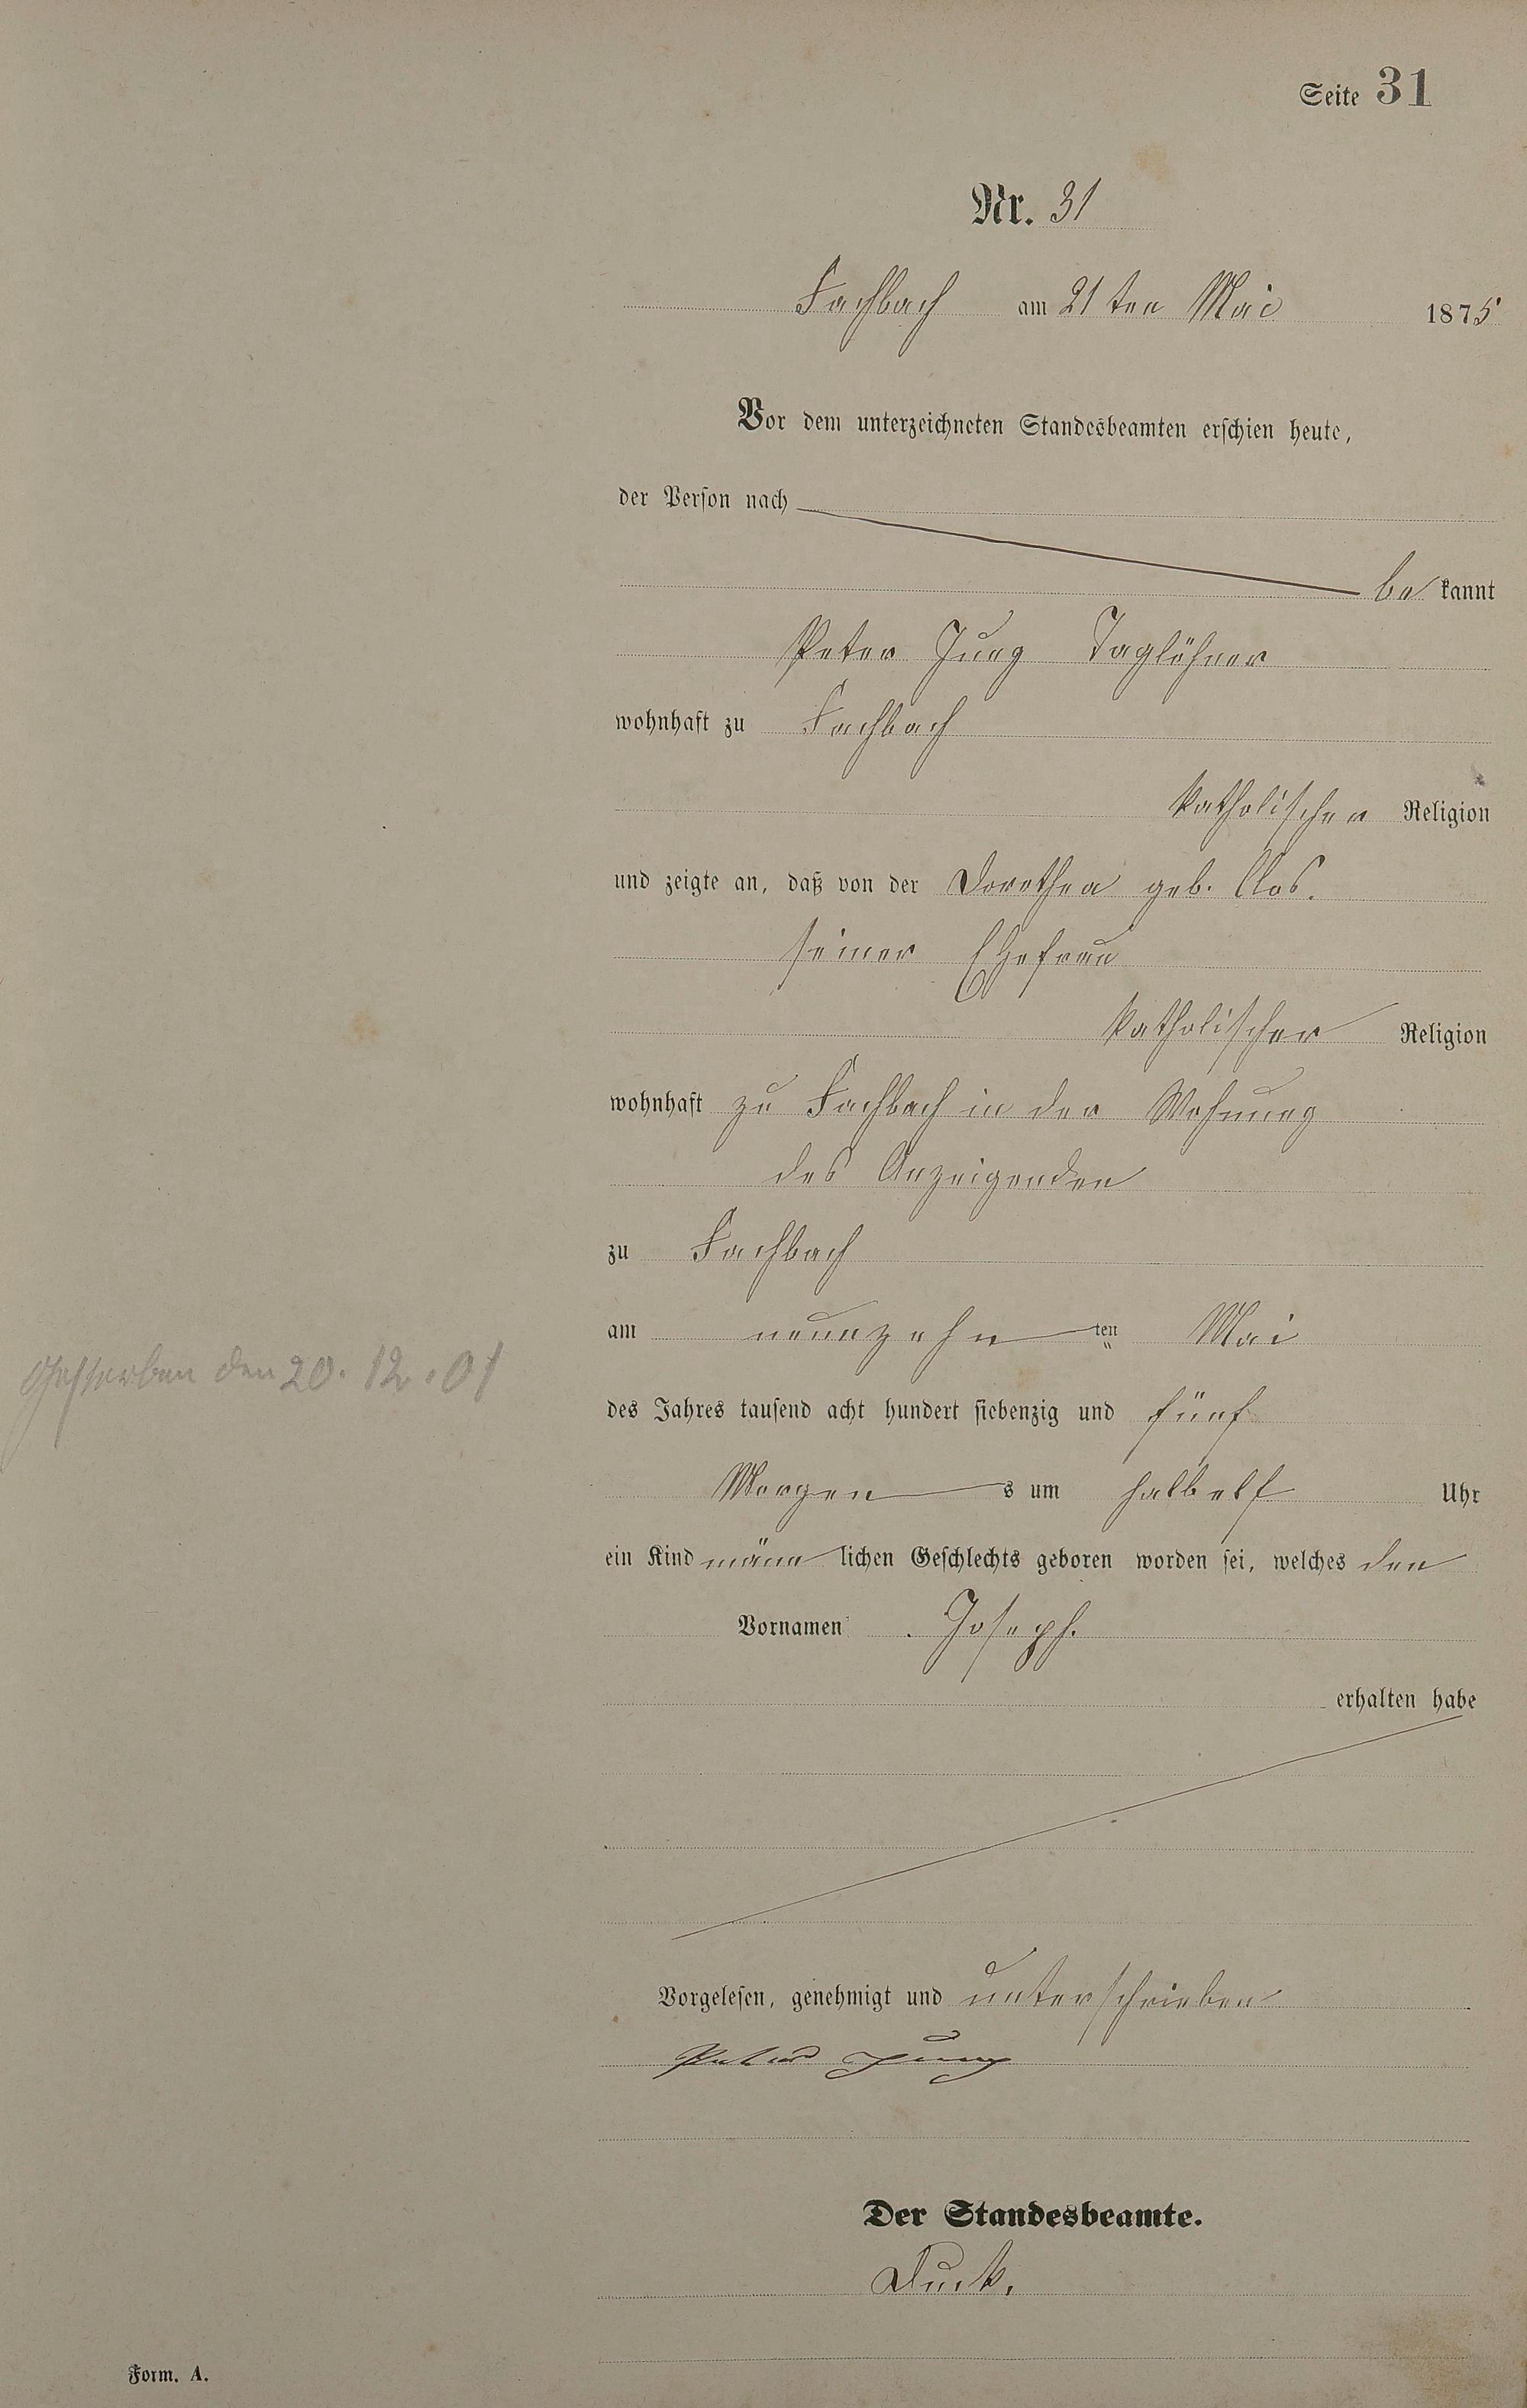 Seite 31
Nr. 31
Fachbach am 21ten Mai 1875
Vor dem unterzeichneten Standesbeamten erschien heute,
der Person nach
bekannt
Peter Jung Taglöhner
wohnhaft zu Fachbach
katholischer Religion
und zeigte an, daß von der Dorothea geb. Clos.
seiner Ehefrau
katholischer Religion
wohnhaft zu Fachbach in der Wohnung
des Anzeigenden
zu Fachbach
am neunzehn ten Mai
Gestorben den 20.12.01
des Jahres tausend acht hundert siebenzig und fünf
Morgen s um halbelf Uhr
ein Kind männlichen Geschlechts geboren worden sei, welches den
Vornamen Joseph.
erhalten habe
Vorgelesen, genehmigt und unterschrieben
Peter Jung
Der Standesbeamte.
Duck.
Form. A.